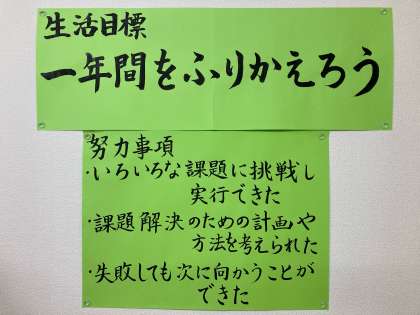 生活目標
一年間をふりかえろう
努力事項
・いろいろな課題に挑戦し
実行できた
・課題解決のための計画や
方法を考えられた
・失敗しても次に向かうことが
できた